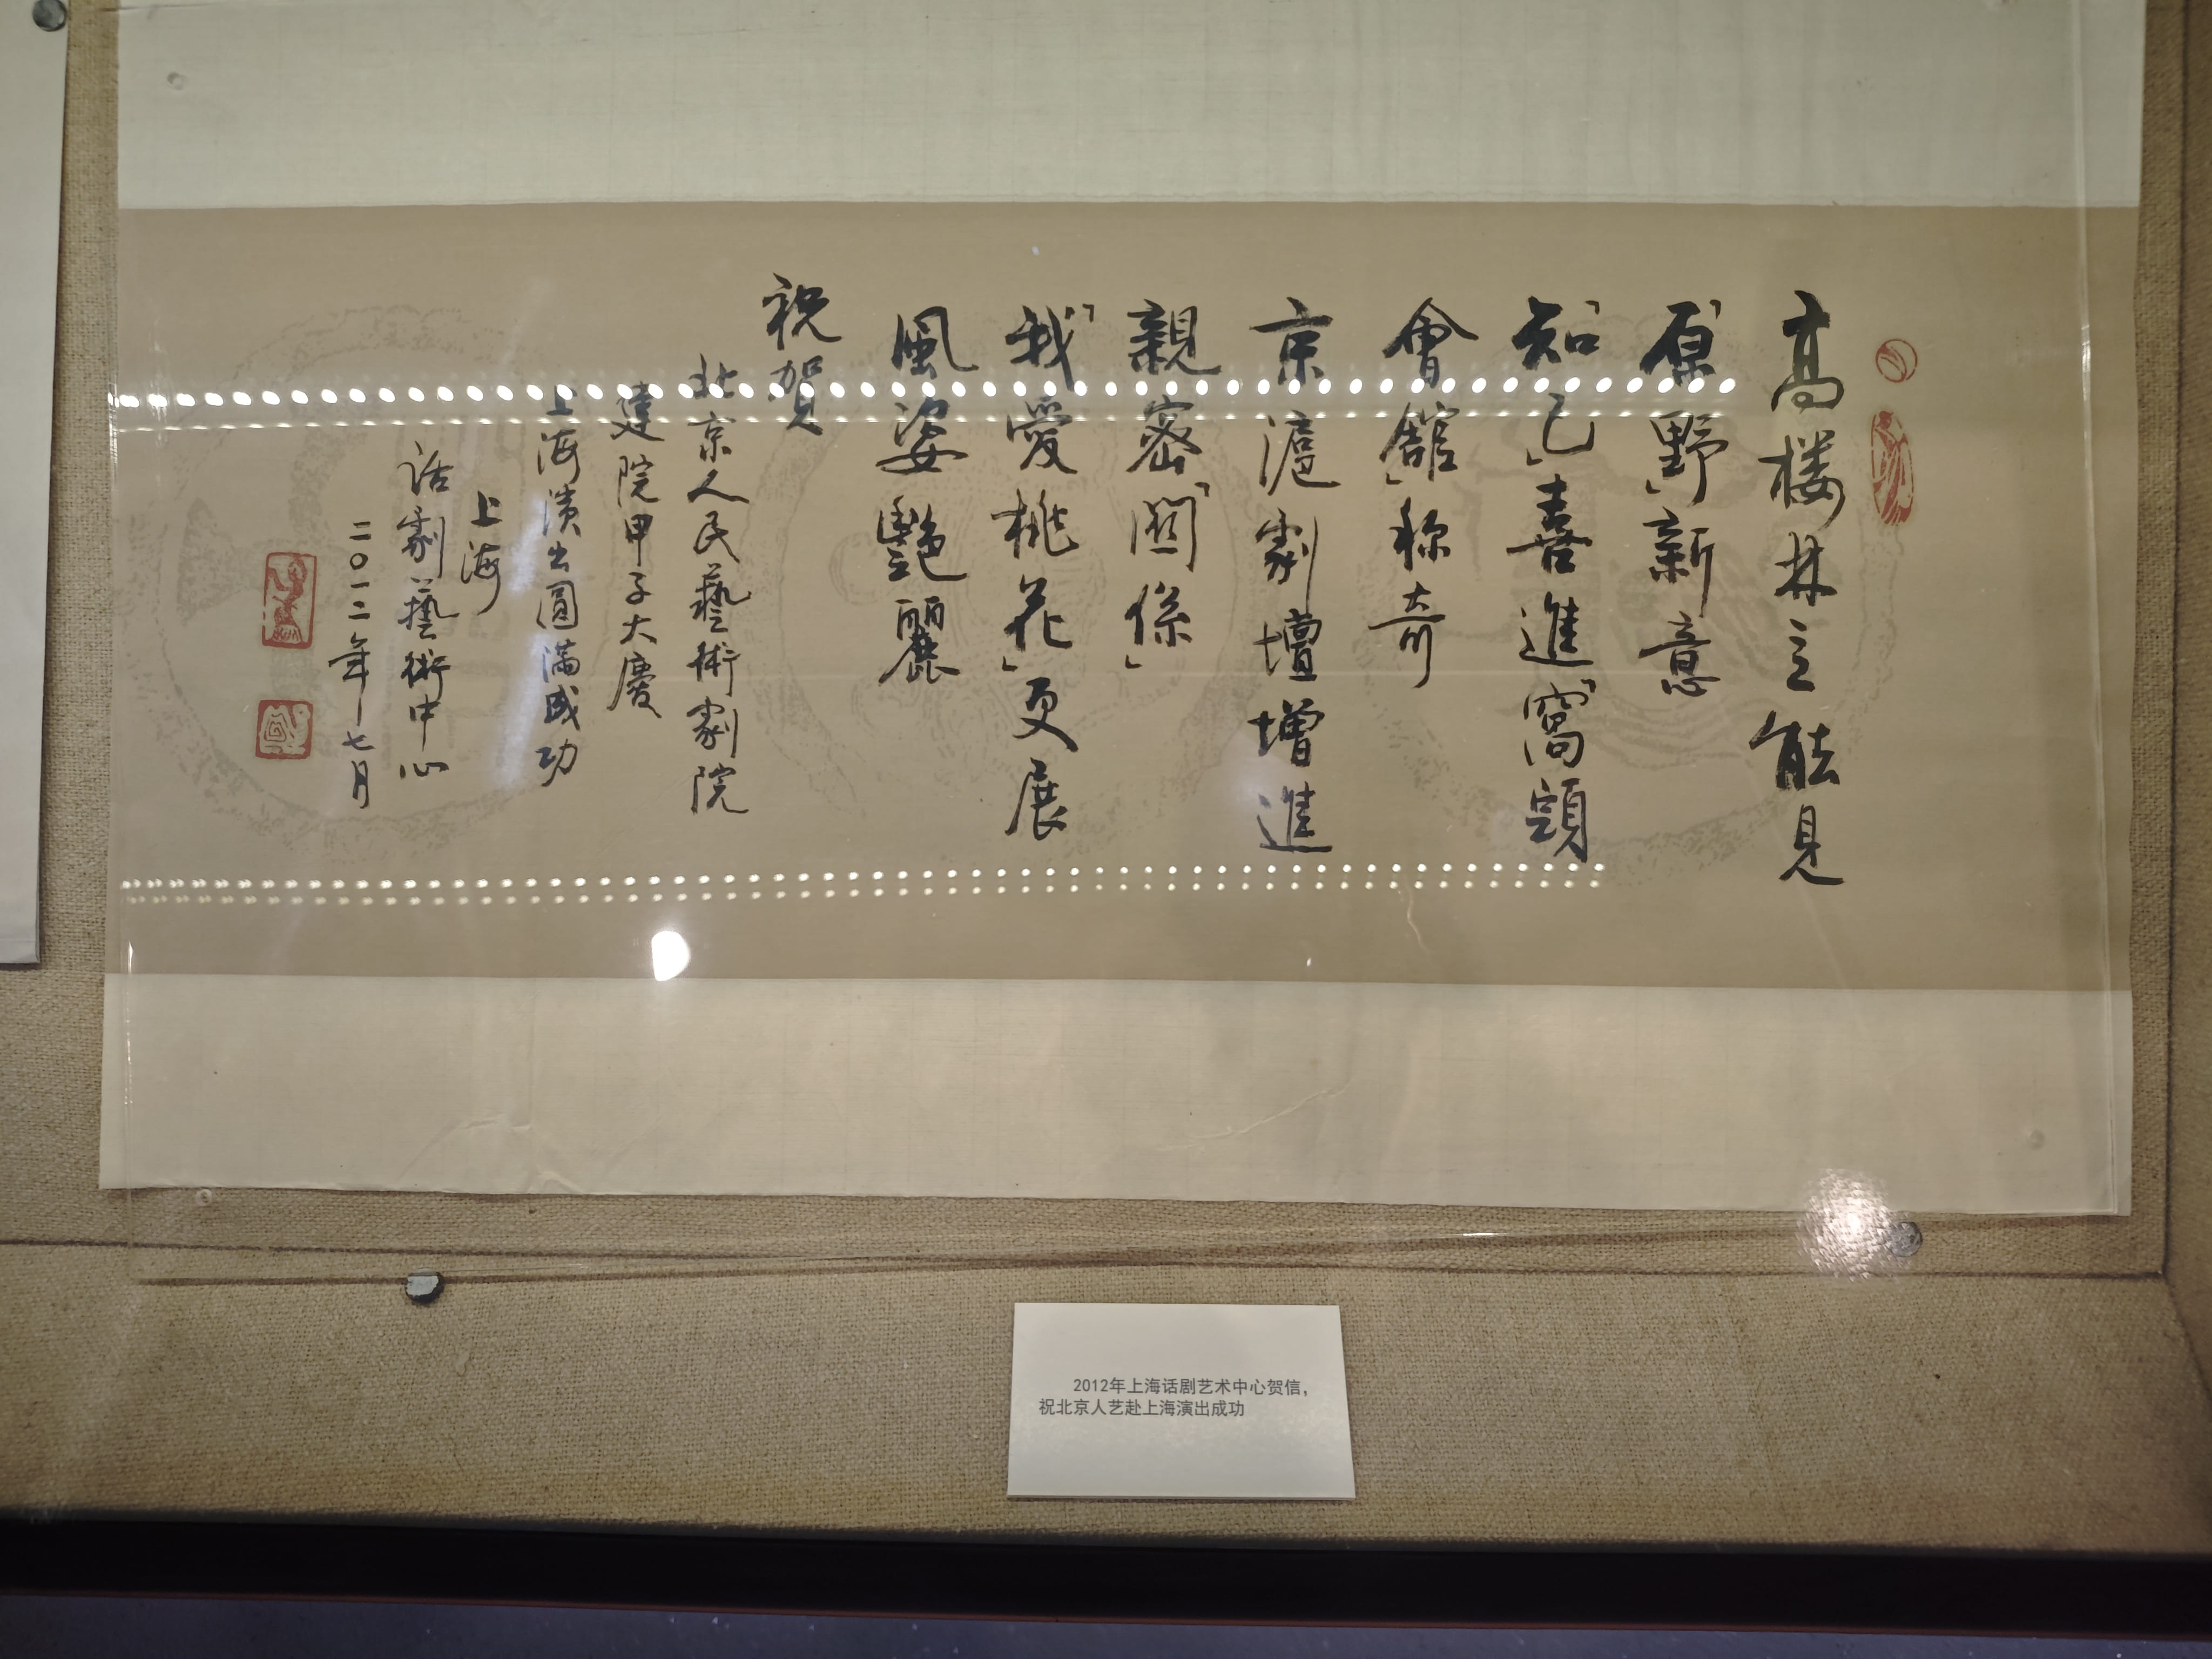 高楼林立能見
「原野」新意
「知己」喜進「窩頭
會館」称奇
京滬劇壇增進
親密「関係」
「我愛桃花」更展
風姿豔麗
祝賀
北京人民藝術劇院
建院甲子大慶
上海演出圓滿成功
上海
話劇藝術中心
二〇一二年七月
2012年上海话剧艺术中心贺信，
祝北京人艺赴上海演出成功